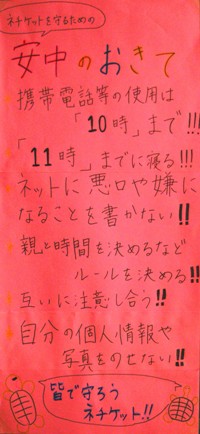 ネチケットを守るための
安中のおきて
携帯電話等の使用は
「10時」まで!!!
「11時」までに寝る!!!
ネットに悪口や嫌に
なることを書かない!!
親と時間を決めるなど
ルールを決める!!
互いに注意し合う!!
自分の個人情報や
写真をのせない!!
皆で守ろう
ネチケット!!